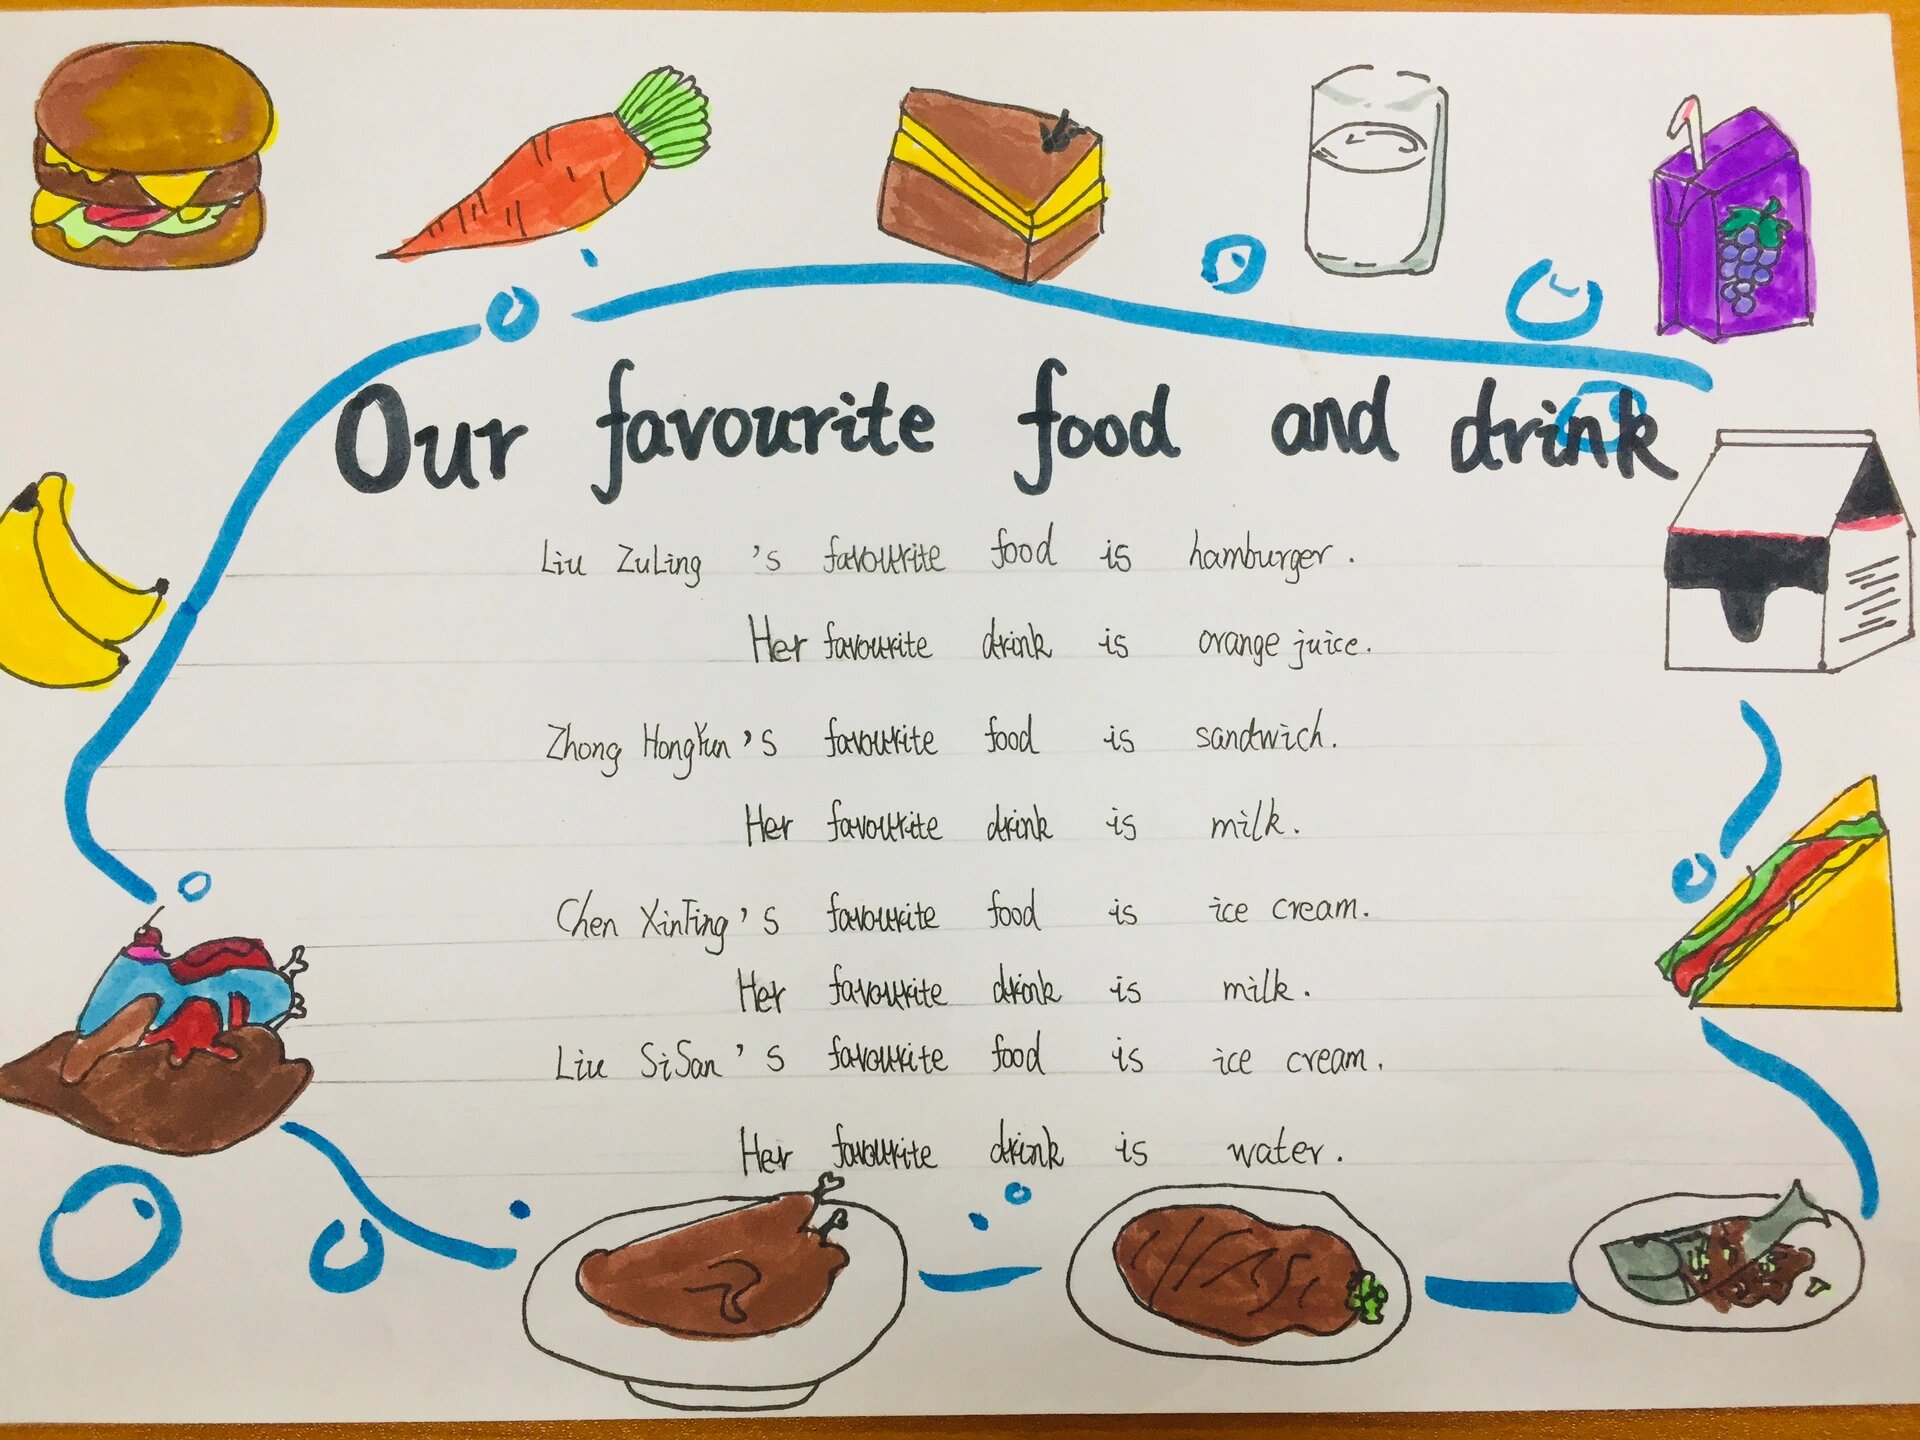 Our favourite food and drink
Liu ZuLing 's favourite food is hamburger.
Her favourite drink is orange juice.
Zhong HongYun's favourite food is sandwich.
Her favourite drink is milk.
Chen XinTing's favourite food is ice cream.
Her favourite drink is milk.
Liu SiSan's favourite food is ice cream.
Her favourite drink is water.